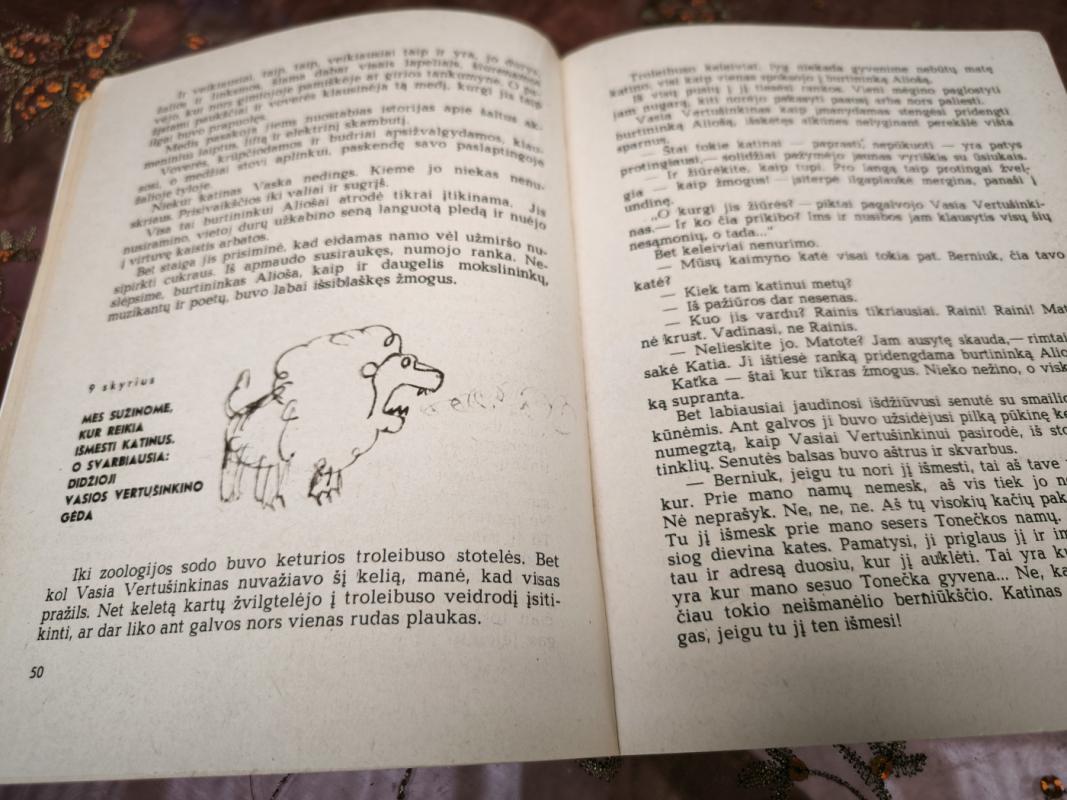 Ir veikiausiai, taip, taip, veikiausiai taip ir yra, jo durys,
žalios ir linksmos, šlama dabar visais lapeliais,
vėjo, kur nors gimtojoje pamiškėje ar girios tankumyne. O pa-
žįstami paukščiai ir voverės klausinėja tą medį, kurgi jis taip
ilgai buvo prapuolęs.
Medis pasakoja jiems nuostabias istorijas apie šaltus ak-
meninius laiptus, liftą ir elektrinį skambutį.
Voverės, krūpčiodamos ir budriai apsižvalgydamos, klau-
sosi, o medžiai stovi aplinkui, paskendę savo paslaptingoje
žalioje tyloje.
Niekur katinas Vaska nedings. Kieme jo niekas nenu-
skriaus. Prisivaikščios iki valiai ir sugrįš.
Visa tai burtininkui Aliošai atrodė tikrai įtikinama. Jis
nusiramino, vietoj durų užkabino seną languotą pledą ir nuėjo
į virtuvę kaistis arbatos.
Bet staiga jis prisiminė, kad eidamas namo vėl užmiršo nu-
sipirkti cukraus. Iš apmaudo susiraukęs, numojo ranka. Ne-
slėpsime, burtininkas Alioša, kaip ir daugelis mokslininkų,
muzikantų ir poetų, buvo labai išsiblaškęs žmogus.
9 skyrius
MES SUŽINOME,
KUR REIKIA
IŠMESTI KATINUS.
O SVARBIAUSIA:
DIDŽIOJI
VASIOS VERTUŠINKINO
GĖDA
Iki zoologijos sodo buvo keturios troleibuso stotelės. Bet
kol Vasia Vertušinkinas nuvažiavo šį kelią, manė, kad visas
pražils. Net keletą kartų žvilgtelėjo į troleibuso veidrodį įsiti-
kinti, ar dar liko ant galvos nors vienas rudas plaukas.
50
Troleibuso keleiviai, lyg niekada gyvenime nebūtų matę
katino, visi kaip vienas spoksojo į burtininką Aliošą.
Iš visų pusių į jį tiesėsi rankos. Vieni mėgino paglostyti
jam nugarą, kiti norėjo pakasyti paausį arba nors paliesti.
Vasia Vertušinkinas kaip įmanydamas stengėsi pridengti
burtininką Aliošą, išskėtęs alkūnes nelyginant perekšlė višta
sparnus.
— Štai tokie katinai — paprasti, nepūkuoti — yra patys
protingiausi,— solidžiai pažymėjo jaunas vyriškis su ūsiukais.
— Ir žiūrėkite, kaip tupi. Pro langą taip protingai žvel-
gia — kaip žmogus! — įsiterpė ilgaplaukė mergina, panaši į
undinę.
„O kurgi jis žiūrės? — piktai pagalvojo Vasia Vertušinki-
nas.— Ir ko čia prikibo? Ims ir nusibos jam klausytis visų šių
nesąmonių, o tada..."
Bet keleiviai nenurimo.
— Mūsų kaimyno katė visai tokia pat. Berniuk, čia tavo
katė?
— Kiek tam katinui metų?
— Iš pažiūros dar nesenas.
— Kuo jis vardu? Rainis tikriausiai. Raini! Raini! Mat
nė krust. Vadinasi, ne Rainis.
— Nelieskite jo. Matote? Jam ausytę skauda,— rimtai
sakė Katia. Ji ištiesė ranką pridengdama burtininką Alio
Katka — štai kur tikras žmogus. Nieko nežino, o visk
ką supranta.
Bet labiausiai jaudinosi išdžiūvusi senutė su smailio
kūnėmis. Ant galvos ji buvo užsidėjusi pilką pūkinę ke
numegztą, kaip Vasiai Vertušinkinui pasirodė, iš sto
tinklių. Senutės balsas buvo aštrus ir skvarbus.
— Berniuk, jeigu tu nori jį išmesti, tai aš tave
kur. Prie mano namų nemesk, aš vis tiek jo ne
Nė neprašyk. Ne, ne, ne. Aš tų visokių kačių pak
Tu jį išmesk prie mano sesers Tonečkos namų.
siog dievina kates. Pamatysi, ji priglaus jį ir im
tau ir adresą duosiu, kur jį auklėti. Tai yra ku
yra kur mano sesuo Tonečka gyvena... Ne, ka
čiau tokio neišmanėlio berniūkščio. Katinas
gas, jeigu tu jį ten išmesi!